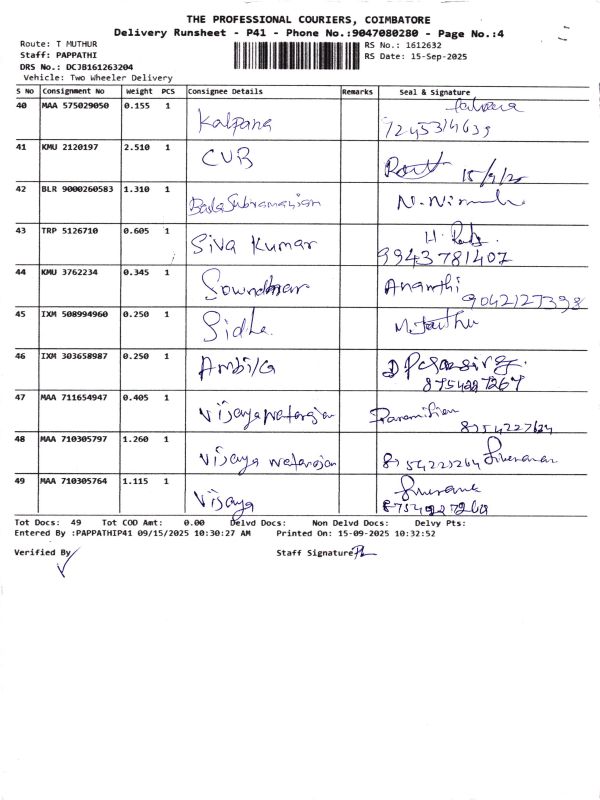 THE PROFESSIONAL COURIERS, COIMBATORE
Delivery Runsheet - P41 - Phone No.:9047080280 - Page No.:4
Route: T MUTHUR
RS No.: 1612632
Staff: PAPPATHI
RS Date: 15-Sep-2025
DRS No.: DCJB161263204
Vehicle: Two Wheeler Delivery
S No Consignment No Weight PCS Consignee Details Remarks Seal & Signature
40 MAA 575029050 0.155 1 Kalpana
41 KMU 2120197 2.510 1 CUB
42 BLR 9000260583 1.310 1 BalaSubramanian
43 TRP 5126710 0.605 1 Siva Kumar
9943781407
44 KMU 3762234 0.345 1 Ananthi
9042127398
45 IXM 508994960 0.250 1 Sidha
46 IXM 303658987 0.250 1
47 MAA 711654947 0.405 1
8754227264
48 MAA 710305797 1.260 1 Vijaya
49 MAA 710305764 1.115 1 Vijaya
Tot Docs: 49 Tot COD Amt: 0.00 Delvd Docs: Non Delvd Docs: Delvy Pts:
Entered By :PAPPATHIP41 09/15/2025 10:30:27 AM Printed On: 15-09-2025 10:32:52
Verified By Staff Signature